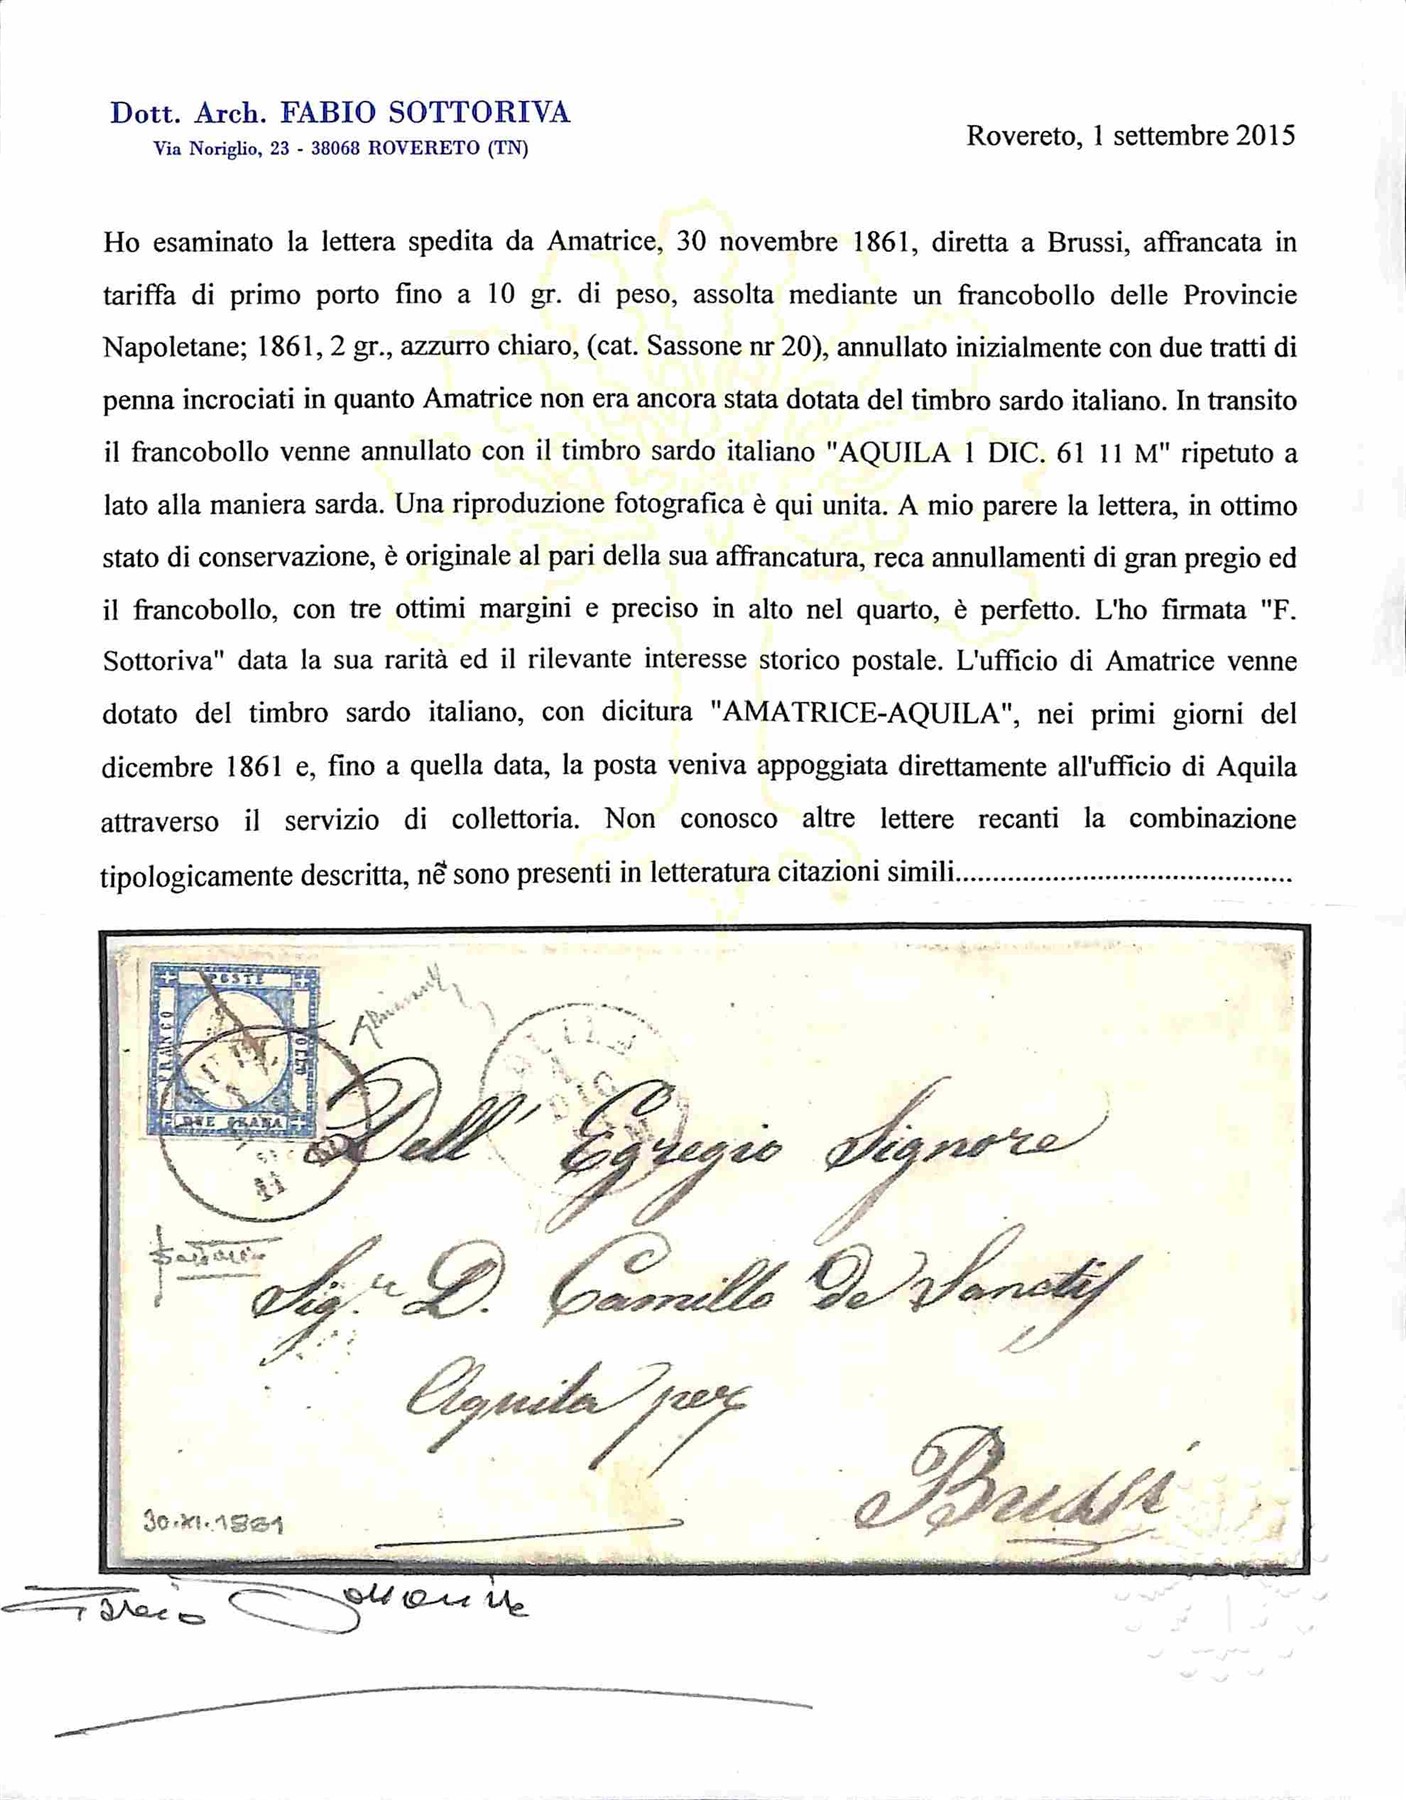 Dott. Arch. FABIO SOTTORIVA
Via Noriglio, 23 - 38068 ROVERETO (TN)
Rovereto, 1 settembre 2015
Ho esaminato la lettera spedita da Amatrice, 30 novembre 1861, diretta a Brussi, affrancata in
tariffa di primo porto fino a 10 gr. di peso, assolta mediante un francobollo delle Provincie
Napoletane; 1861, 2 gr., azzurro chiaro, (cat. Sassone nr 20), annullato inizialmente con due tratti di
penna incrociati in quanto Amatrice non era ancora stata dotata del timbro sardo italiano. In transito
il francobollo venne annullato con il timbro sardo italiano "AQUILA 1 DIC. 61 11 M" ripetuto a
lato alla maniera sarda. Una riproduzione fotografica è qui unita. A mio parere la lettera, in ottimo
stato di conservazione, è originale al pari della sua affrancatura, reca annullamenti di gran pregio ed
il francobollo, con tre ottimi margini e preciso in alto nel quarto, è perfetto. L'ho firmata "F.
Sottoriva" data la sua rarità ed il rilevante interesse storico postale. L'ufficio di Amatrice venne
dotato del timbro sardo italiano, con dicitura "AMATRICE-AQUILA", nei primi giorni del
dicembre 1861 e, fino a quella data, la posta veniva appoggiata direttamente all'ufficio di Aquila
attraverso il servizio di collettoria. Non conosco altre lettere recanti la combinazione
tipologicamente descritta, nè sono presenti in letteratura citazioni simili............................................
POSTE
FRANCO
BOLLO
DUE GRANA
11
1
DIC
Dell' Egregio Signore
Sig.r D. Camillo de Sanctis
Aquila per
Brussi
30.XI.1861
Fabio Sottoriva